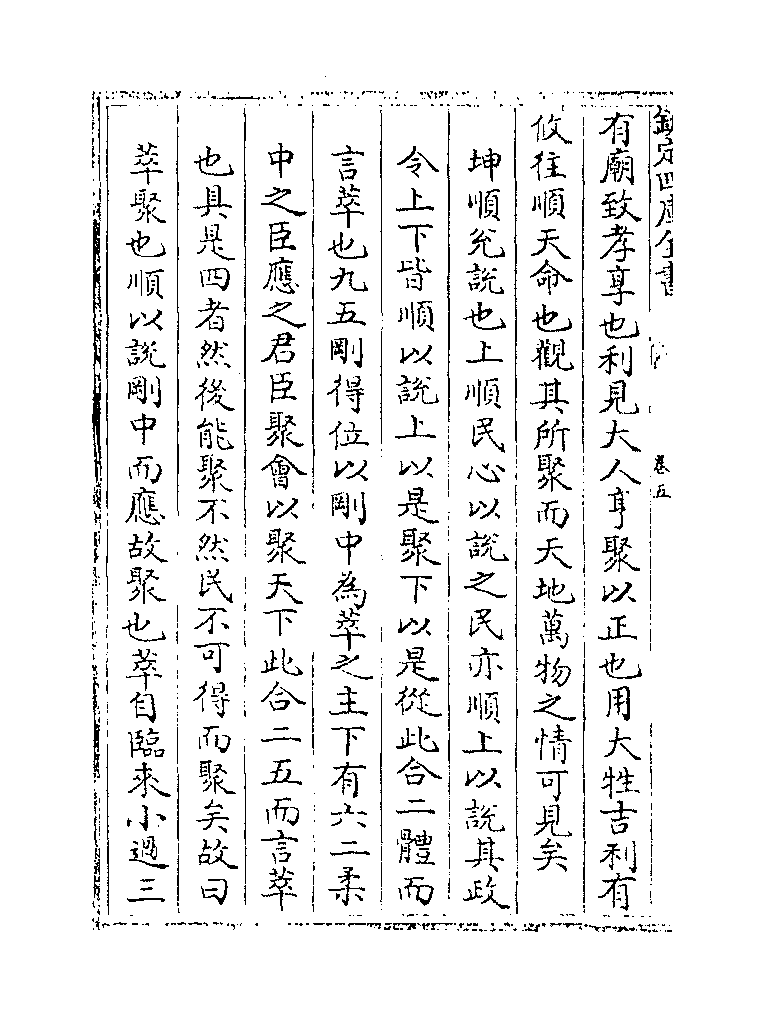 欽定四庫全書
卷五
有廟致孝享也利見大人亨聚以正也用大牲吉利有
攸往順天命也觀其所聚而天地萬物之情可見矣
坤順兊說也上順民心以說之民亦順上以說其政
令上下皆順以說上以是聚下以是從此合二體而
言萃也九五剛得位以剛中為萃之主下有六二柔
中之臣應之君臣聚會以聚天下此合二五而言萃
也具是四者然後能聚不然民不可得而聚矣故曰
萃聚也順以說剛中而應故聚也萃自臨來小過三